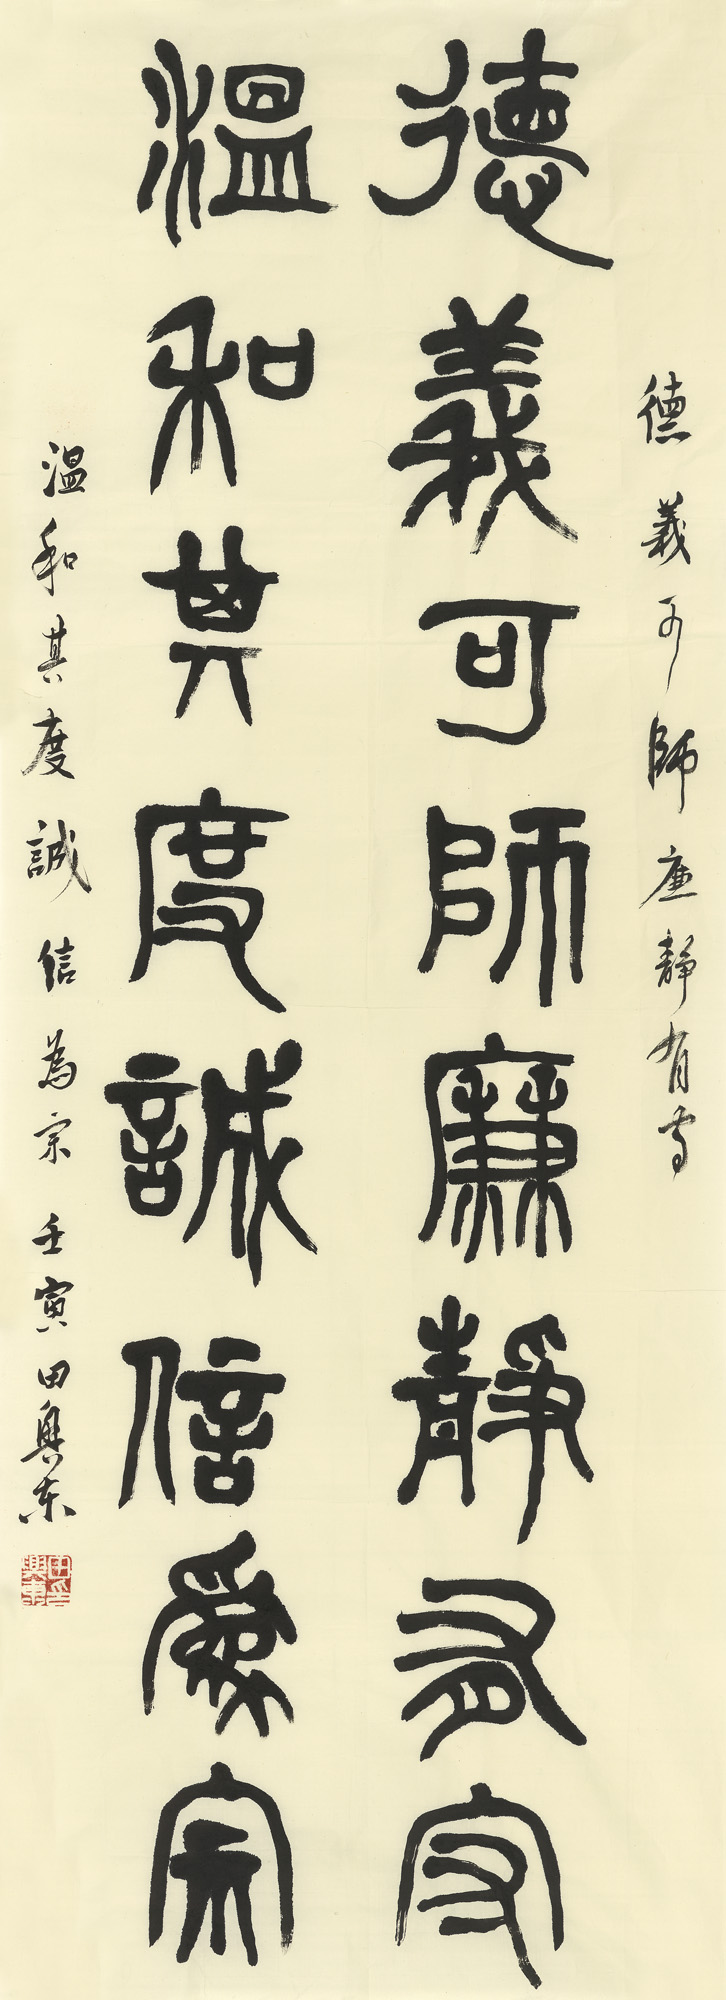 德義可師廉靜有守
德義可師廉靜有守
溫和其度誠信為宗
温和其度誠信為宗 壬寅 田興東
田興東印